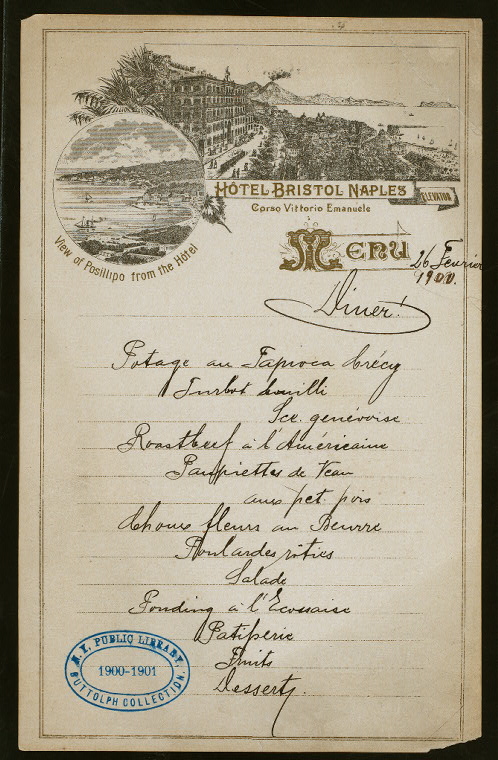 HÔTEL BRISTOL NAPLES
ELEVATOR
Corso Vittorio Emanuele
View of Posillipo from the Hôtel
MENU
26 Fevrier
1900.
Diner!
Potage au Tapioca Crécy
Turbot bouilli
Sce. genévoise
Roastbeef à l'Américaine
Paupiettes de Veau
aux pet. pois
Choux fleurs au Beurre
Poulardes rôties
Salade
Pouding à l'Ecossaise
Patisserie
Fruits
Dessert
N.Y. PUBLIC LIBRARY.
1900-1901
BUTTOLPH COLLECTION.